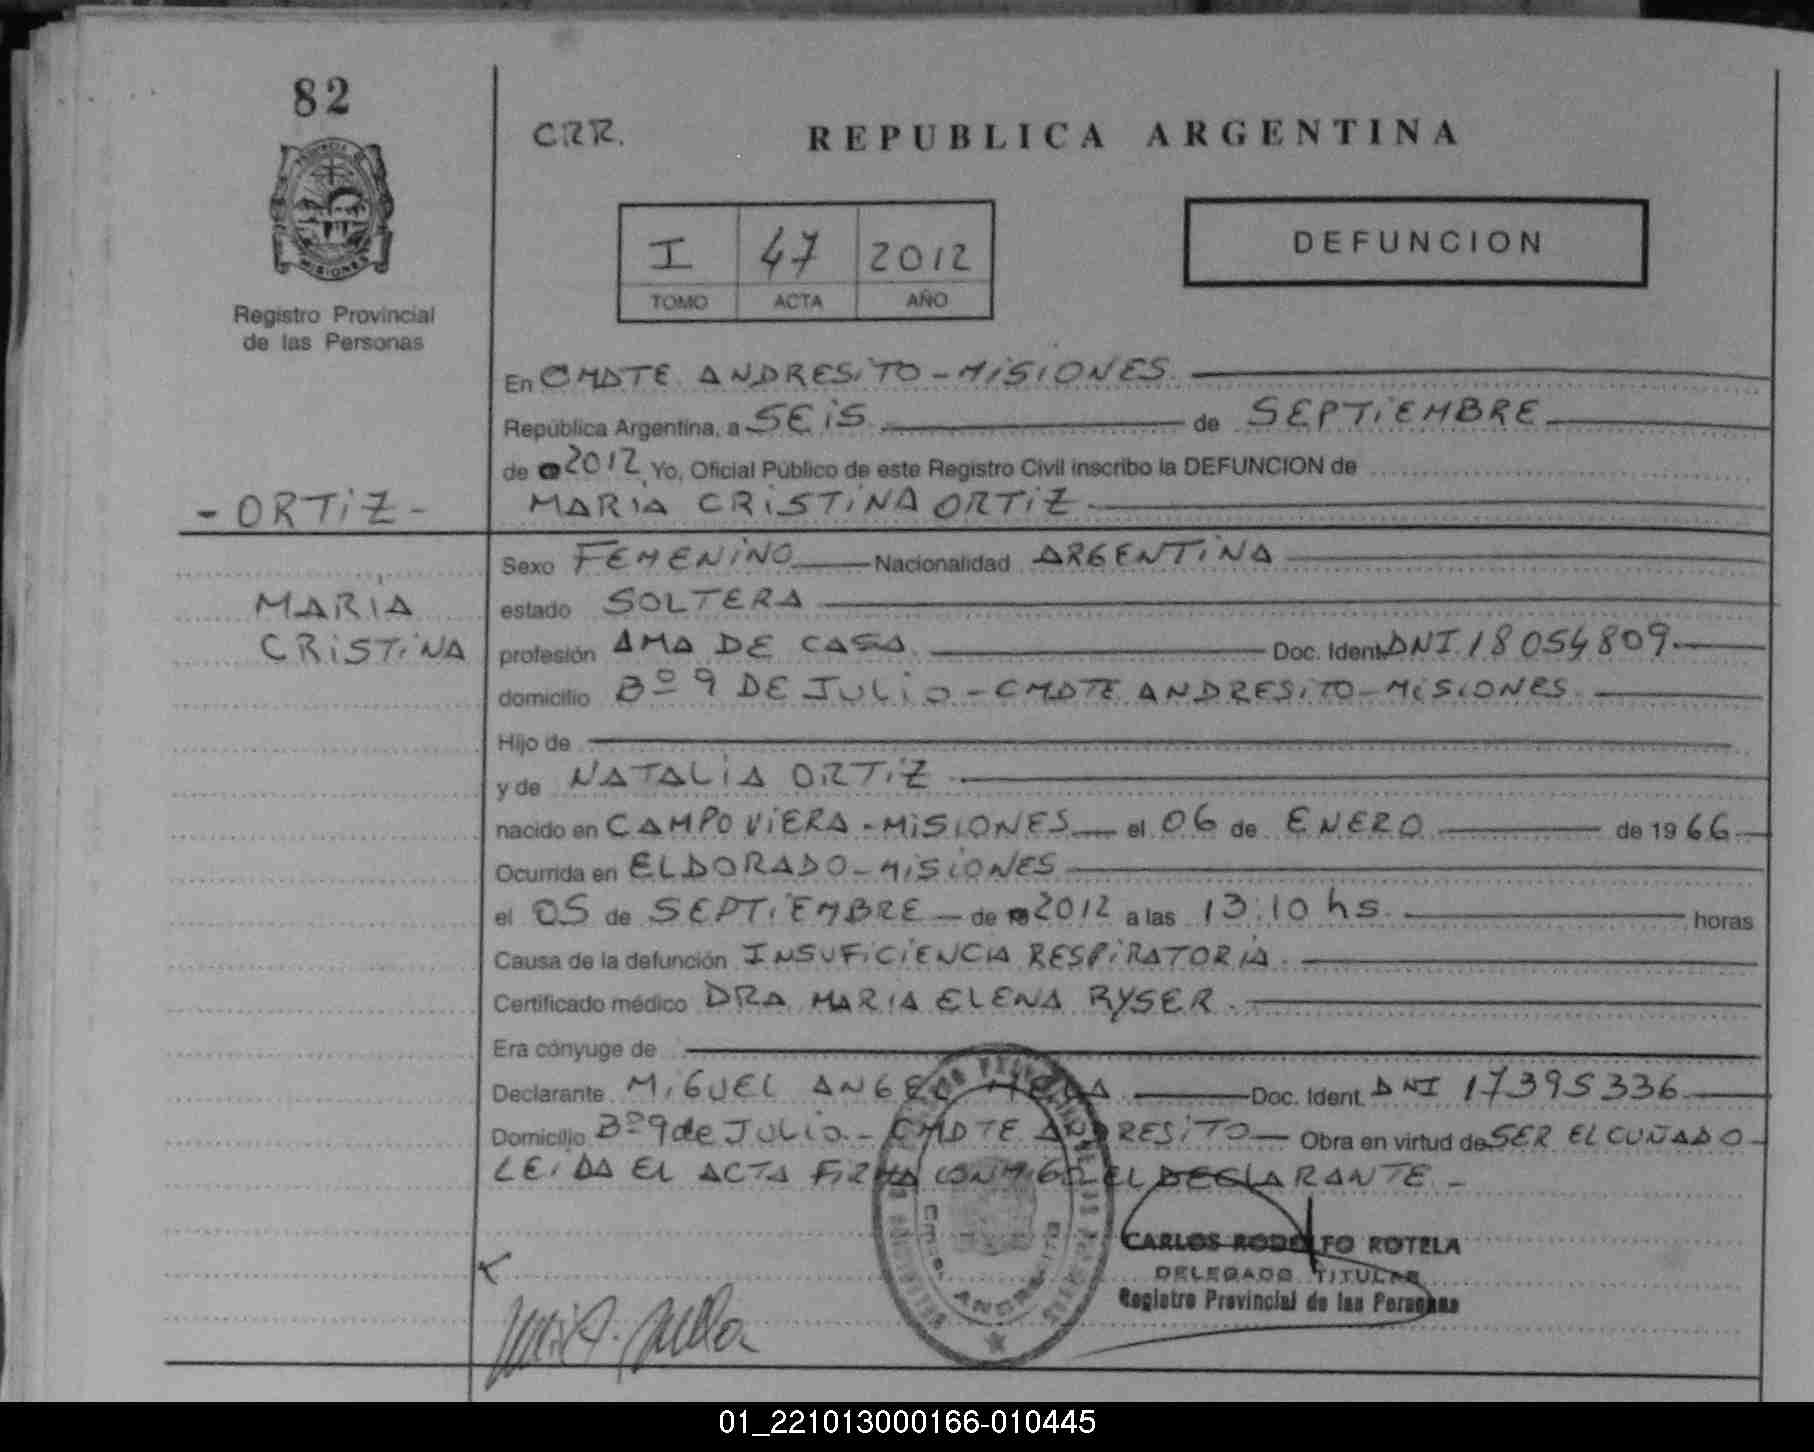 82
CRR.
REPUBLICA ARGENTINA
PROVINCIA DE
MISIONES
I 47 2012
TOMO ACTA AÑO
DEFUNCION
Registro Provincial
de las Personas
En CMDTE ANDRESITO - MISIONES
República Argentina, a SEIS de SEPTIEMBRE
de 2012 Yo, Oficial Público de este Registro Civil inscribo la DEFUNCION de
- ORTIZ - MARIA CRISTINA ORTIZ
Sexo FEMENINO Nacionalidad ARGENTINA
MARIA estado SOLTERA
CRISTINA profesión AMA DE CASA Doc. Ident. DNI 18054809
domicilio Bº 9 DE JULIO - CMDTE ANDRESITO - MISIONES
Hijo de
y de NATALIA ORTIZ
nacido en CAMPO VIERA - MISIONES el 06 de ENERO de 1966
Ocurrida en ELDORADO - MISIONES
el 05 de SEPTIEMBRE de 2012 a las 13:10 hs. horas
Causa de la defunción INSUFICIENCIA RESPIRATORIA
Certificado médico DRA MARIA ELENA RYSER
Era cónyuge de
Declarante MIGUEL ANGEL Doc. Ident. DNI 17395336
Domicilio Bº 9 de JULIO - CMDTE ANDRESITO Obra en virtud de SER EL CUÑADO
LEIDA EL ACTA FIRMA CONMIGO EL DECLARANTE -
CARLOS RODOLFO ROTELA
DELEGADO TITULAR
Registro Provincial de las Personas
01_221013000166-010445